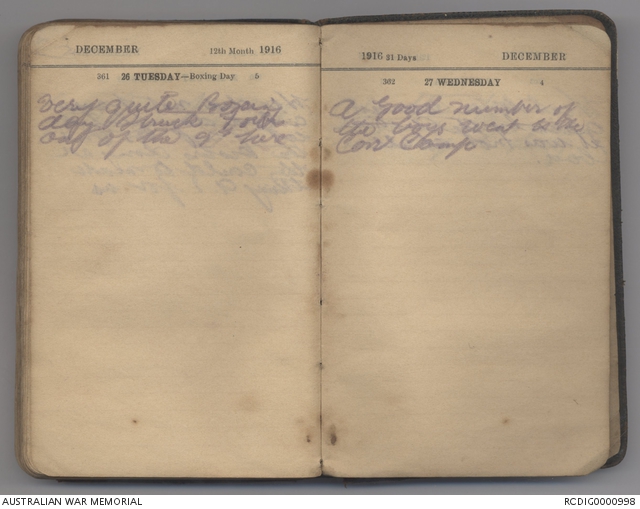 DECEMBER 12th Month 1916
361 26 TUESDAY—Boxing Day 5
Very quite Boxing
day Struck
out of the
1916 31 Days DECEMBER
362 27 WEDNESDAY 4
A Good number of
the boys went to the
Con Camp
AUSTRALIAN WAR MEMORIAL
RCDIG0000998